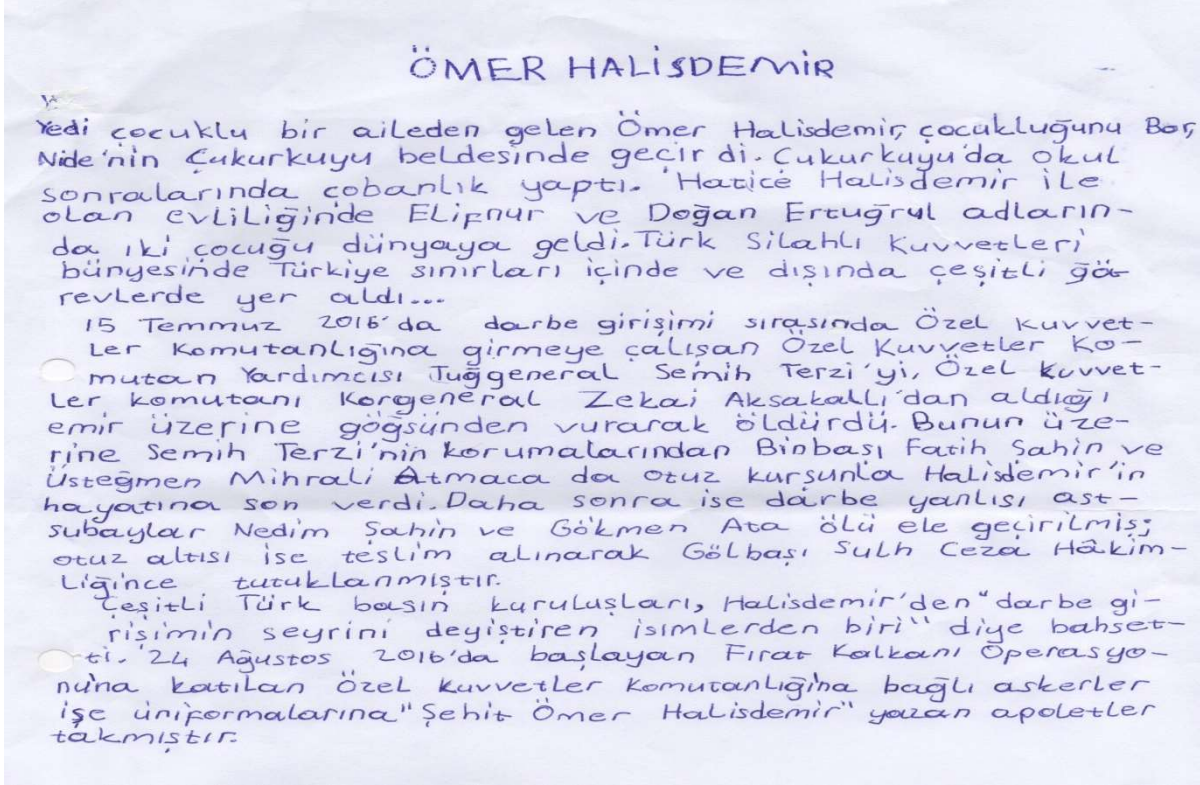 ÖMER HALİSDEMİR
Yedi çocuklu bir aileden gelen Ömer Halisdemir, çocukluğunu Bor,
Nide'nin Çukurkuyu beldesinde geçir di. Çukurkuyu'da okul
sonralarında çobanlık yaptı. Hatice Halisdemir ile
olan evliliğinde Elifnur ve Doğan Ertuğrul adların-
da iki çocuğu dünyaya geldi. Türk Silahlı Kuvvetleri
bünyesinde Türkiye sınırları içinde ve dışında çeşitli gö-
revlerde yer aldı...
15 Temmuz 2016'da darbe girişimi sırasında Özel Kuvvet-
ler Komutanlığına girmeye çalışan Özel Kuvvetler Ko-
mutan Yardımcısı Tuğgeneral Semih Terzi'yi, Özel Kuvvet-
ler komutanı Korgeneral Zekai Aksakallı'dan aldığı
emir üzerine göğsünden vurarak öldürdü. Bunun üze-
rine Semih Terzi'nin korumalarından Binbaşı Fatih Şahin ve
Üsteğmen Mihrali Atmaca da otuz kurşunla Halisdemir'in
hayatına son verdi. Daha sonra ise darbe yanlısı ast-
subaylar Nedim Şahin ve Gökmen Ata ölü ele geçirilmiş;
otuz altısı ise teslim alınarak Gölbaşı Sulh Ceza Hâkim-
liğince tutuklanmıştır.
Çeşitli Türk basın kuruluşları, Halisdemir'den "darbe gi-
rişimin seyrini deyiştiren isimlerden biri" diye bahset-
ti. 24 Ağustos 2016'da başlayan Fırat Kalkanı Operasyo-
nu'na katılan Özel Kuvvetler Komutanlığına bağlı askerler
işe üniformalarına "Şehit Ömer Halisdemir" yazan apoletler
takmıştır.